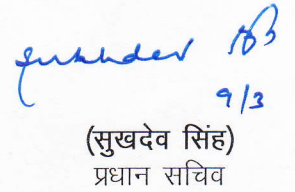 Sukhdev
9/3
(सुखदेव सिंह)
प्रधान सचिव